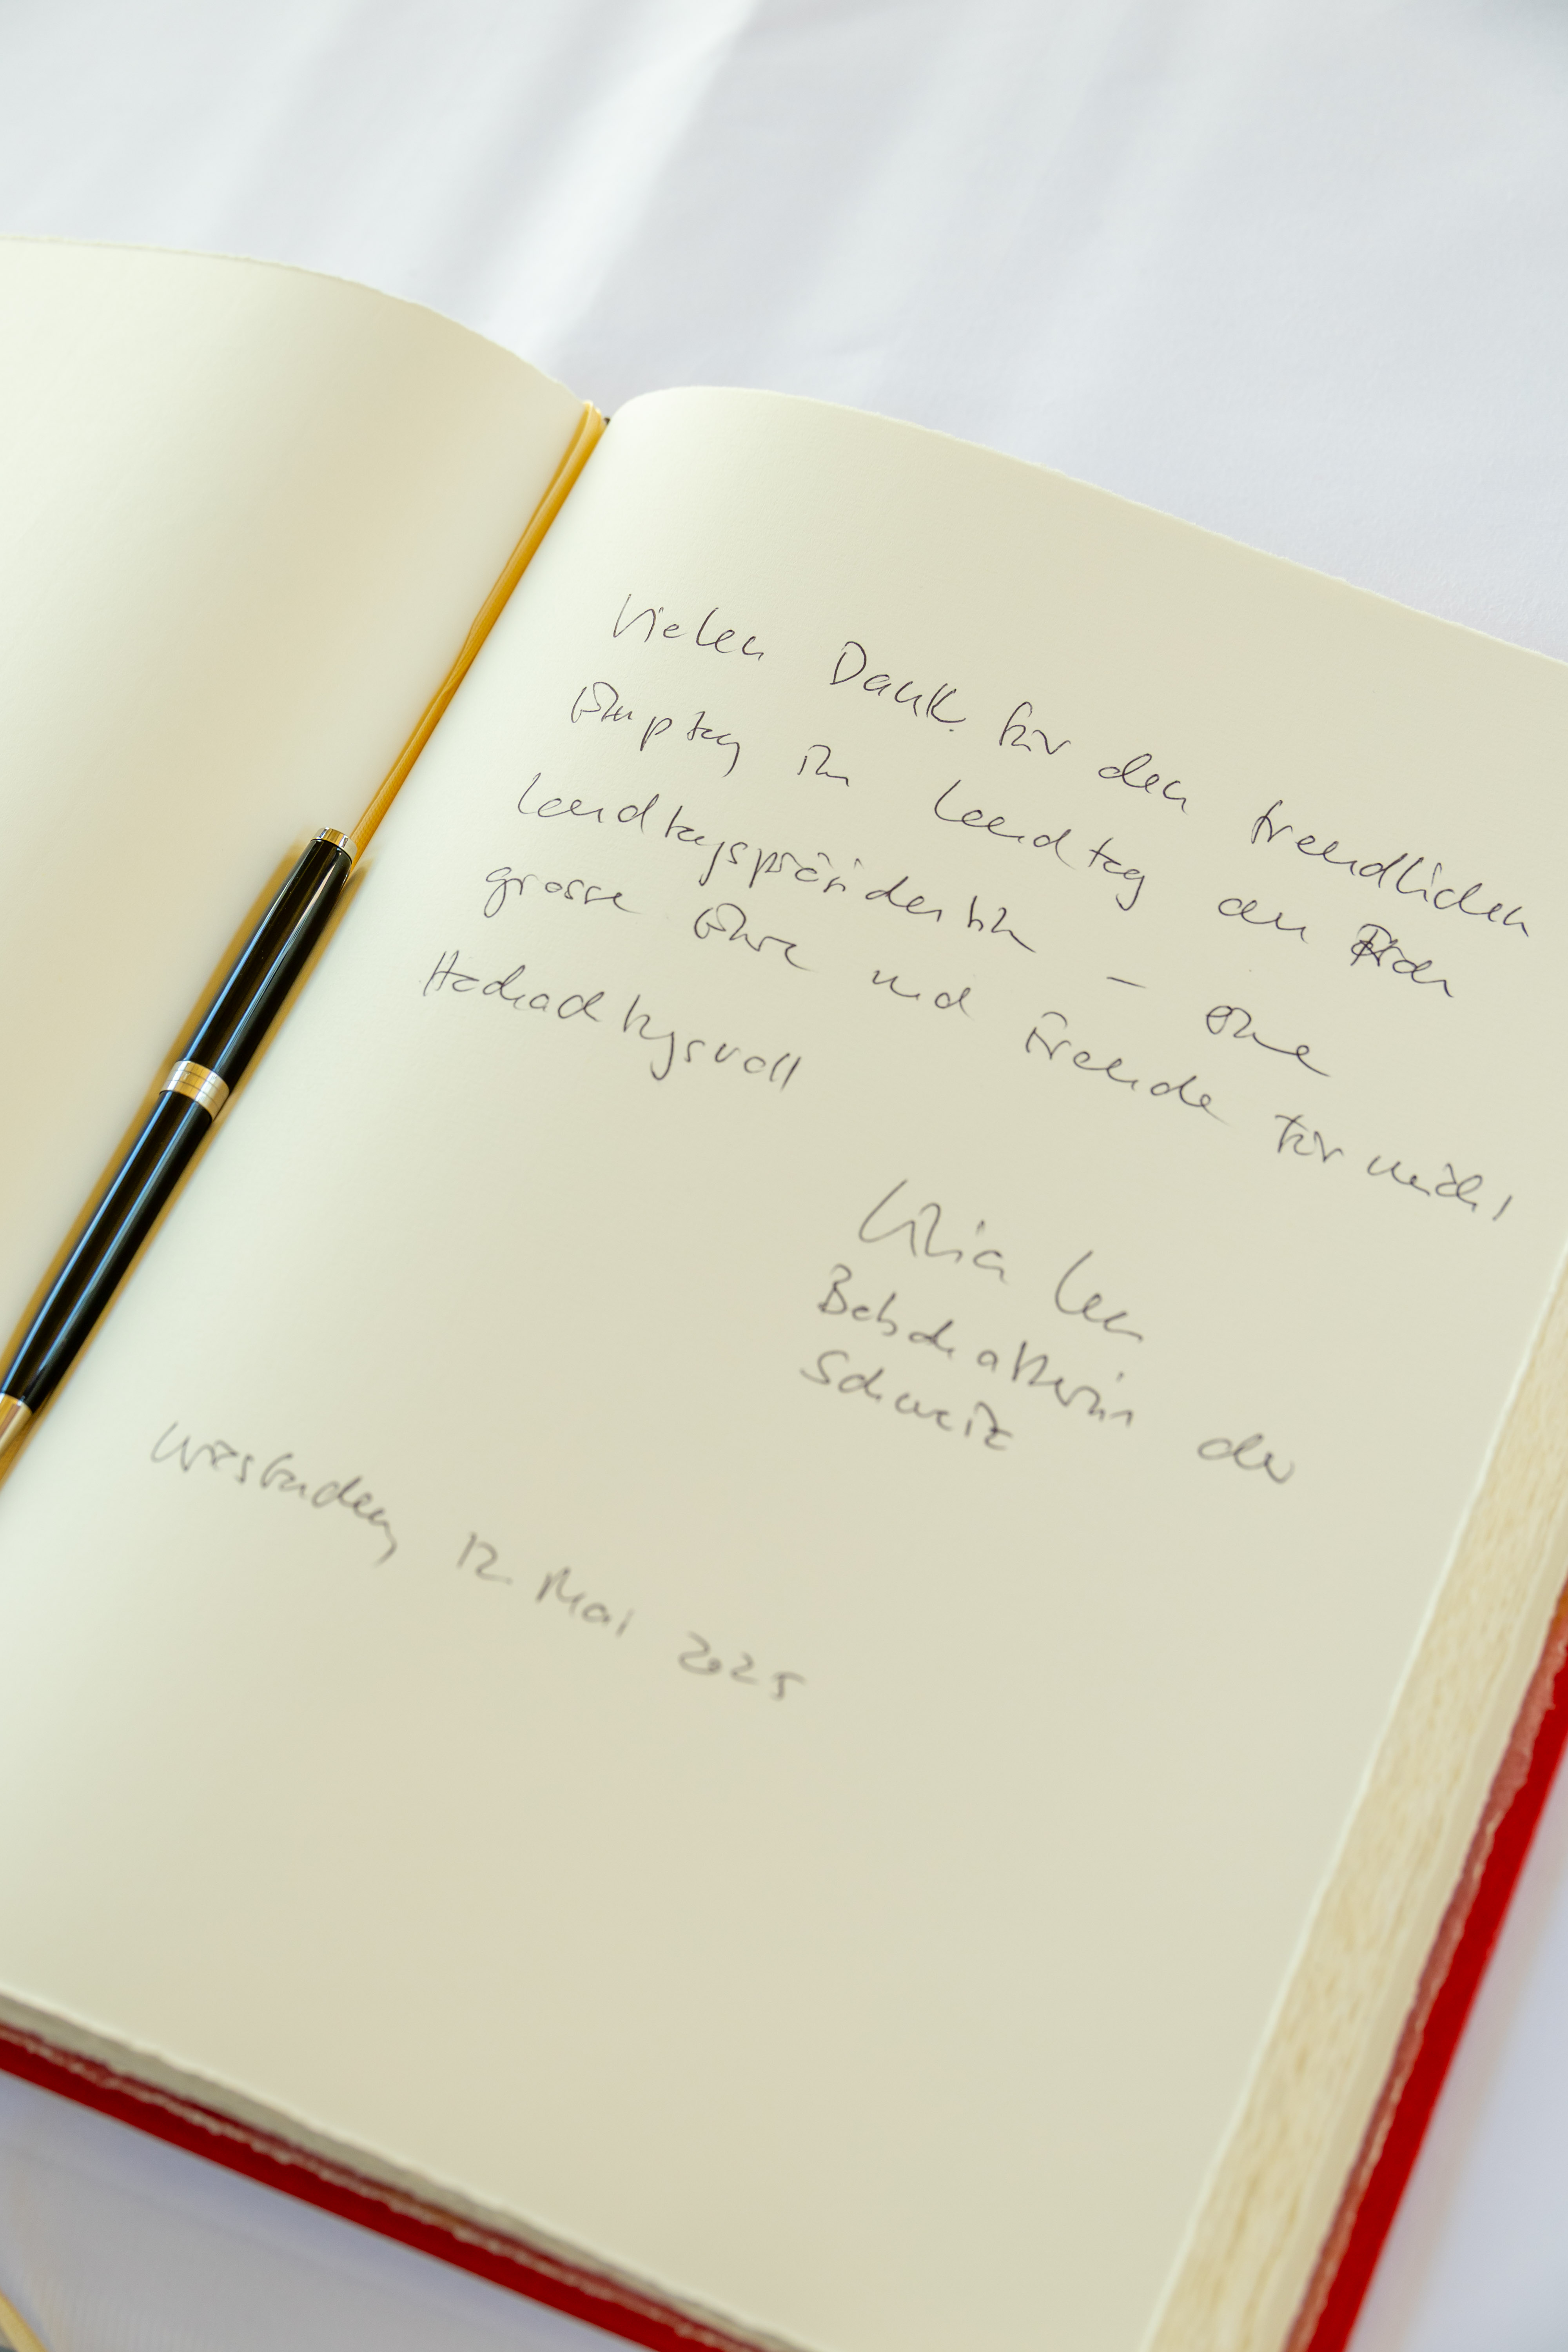 Vielen Dank für den freundlichen
Empfang im Landtag an Frau
Landtagspräsidentin – eine
grosse Ehre und Freude für mich!
Hochachtungsvoll
Livia Leu
Botschafterin der
Schweiz
Wiesbaden, 12. Mai 2025